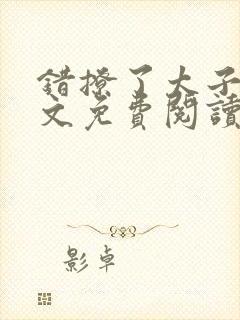 错撩了大子
文免費閱讀
影卓